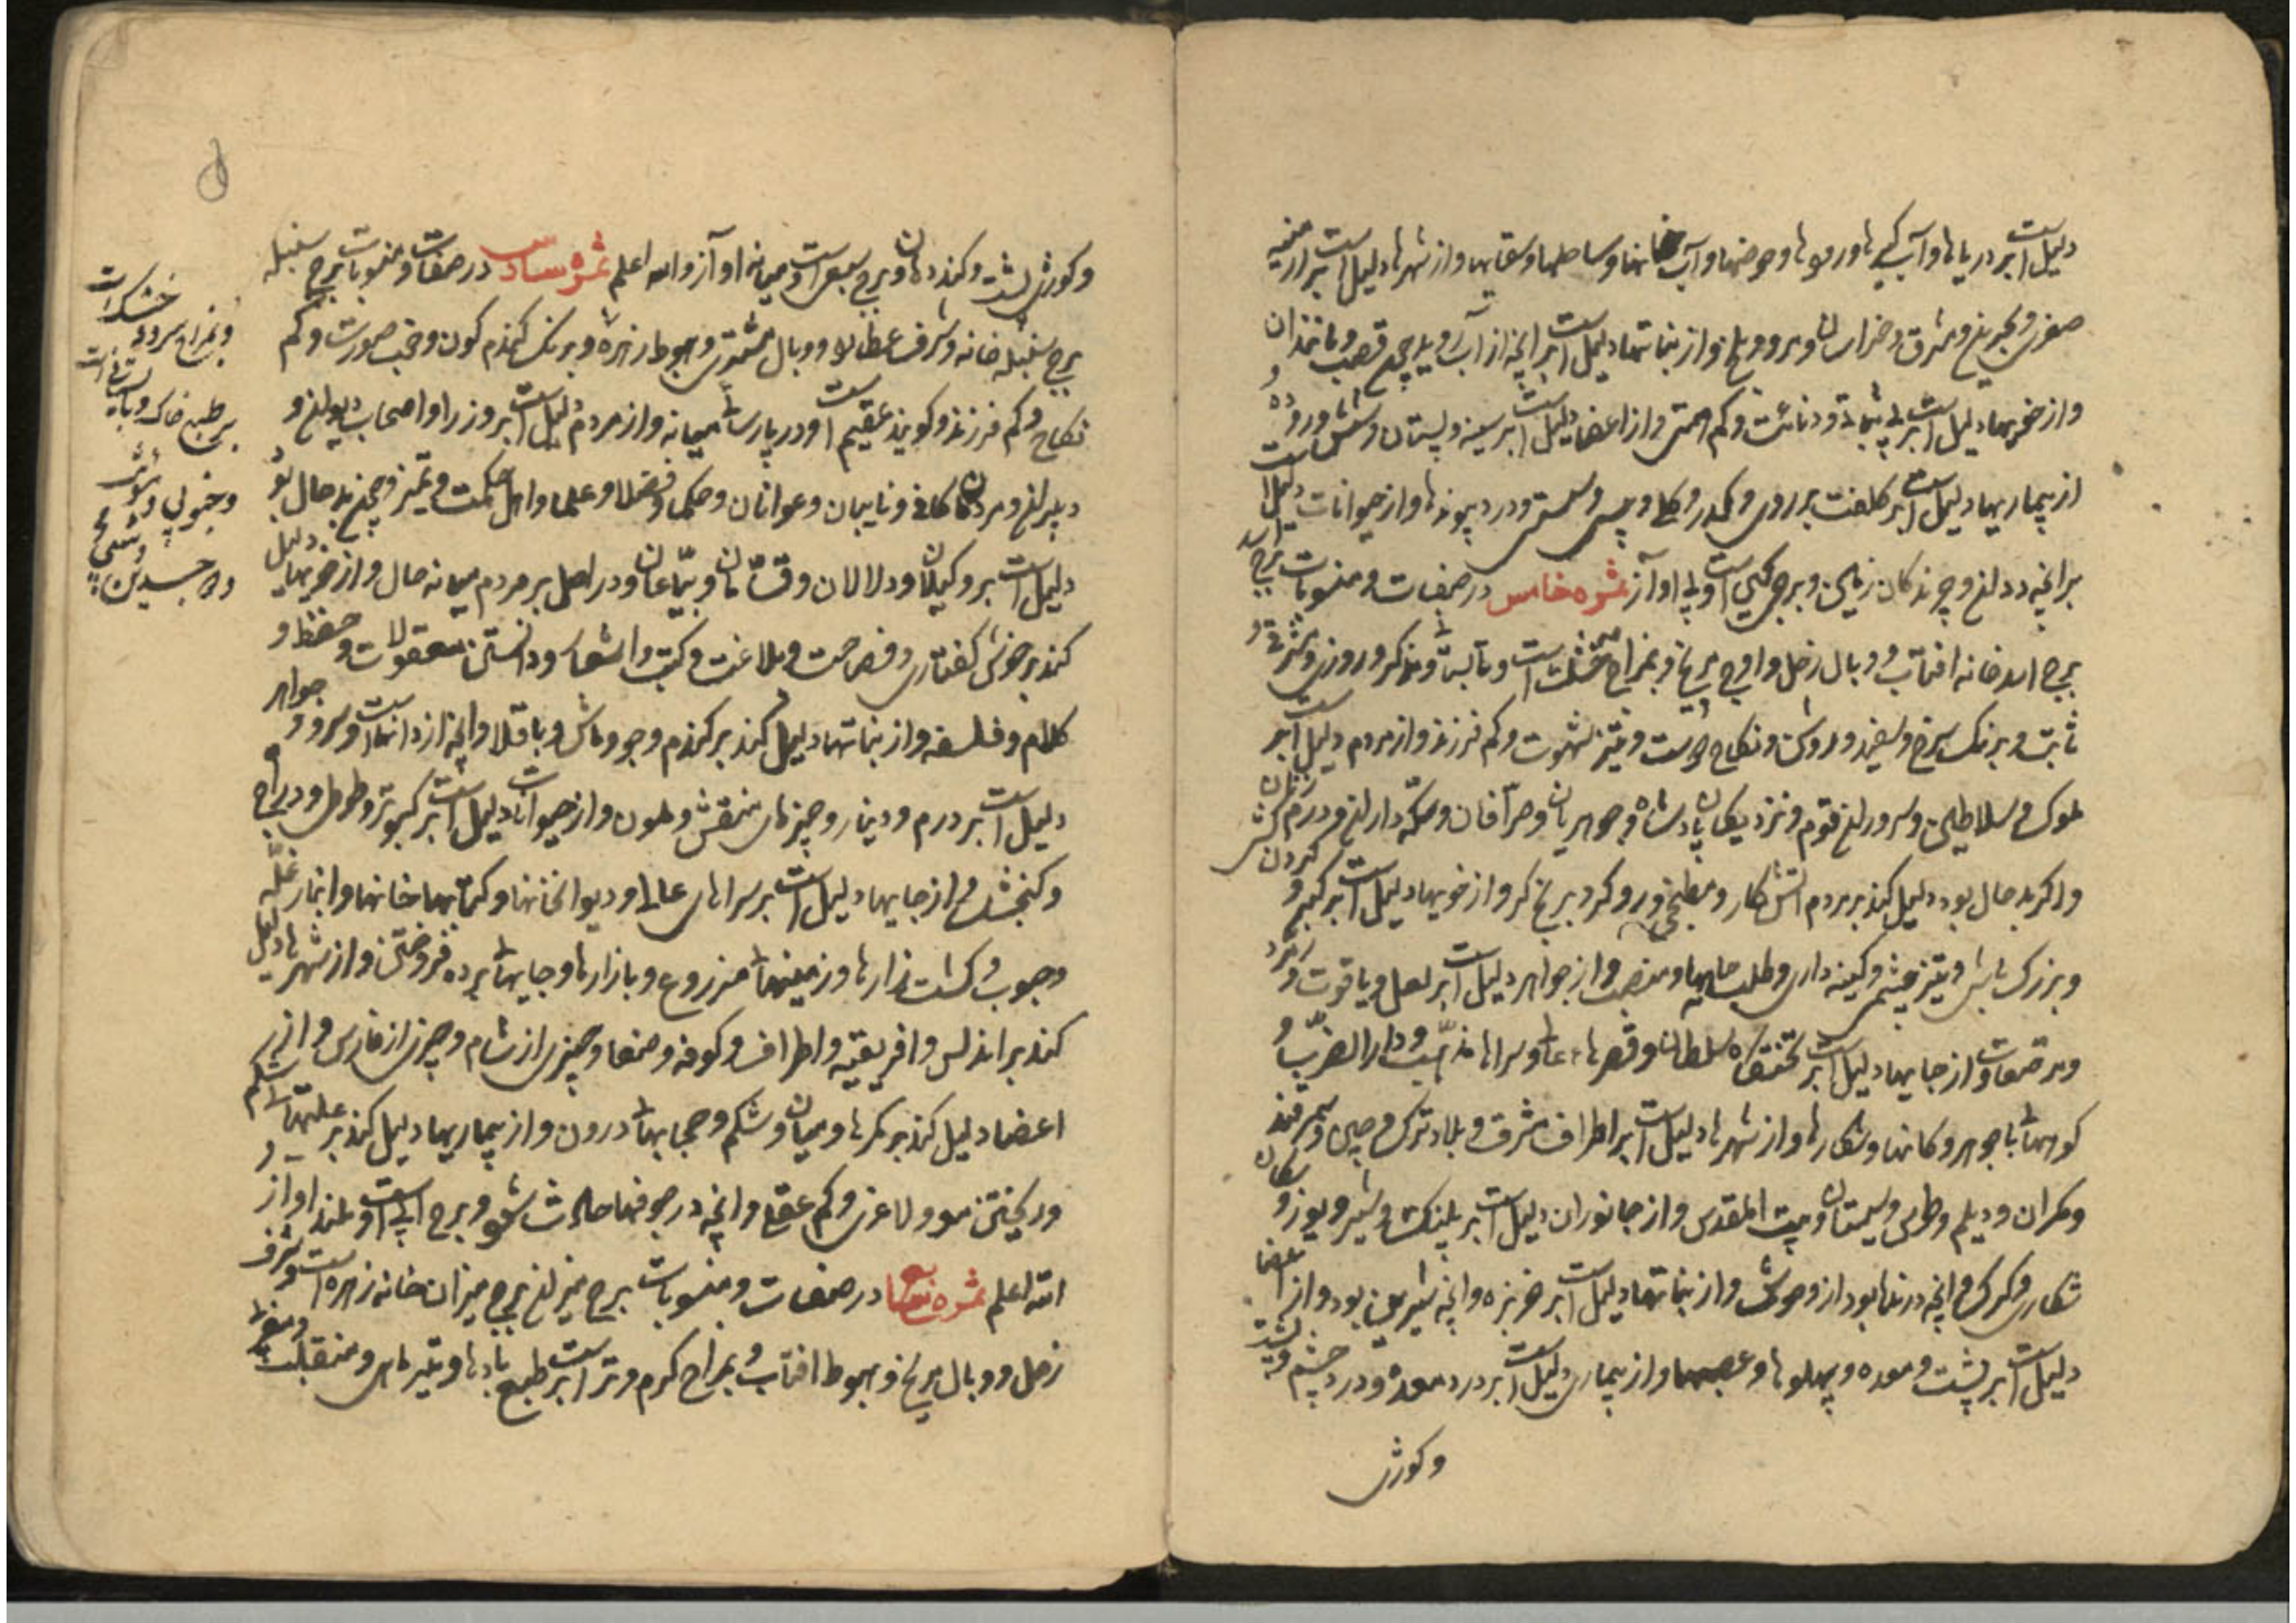 دلیل است بر دریاها و آب گیرها و رودها و حوضها و آب خانها و ساحلها و سقایها و از شهرها دلیل است بر ارمنیه
صغری و بحرین و مشرق و خراسان و مرو و بلخ و از نباتها دلیل است بر آنچه از آب روید چون قصب و مانند آن
و از خویها دلیل است بر بی ثباتی و دنائت و کم همتی و از اعضا دلیل است بر سینه و پستان و شش و روده و
از بیماریها دلیل است بر کلفت بر روی و کدر و کلی و پیسی و سستی و درد پیوندها و از حیوانات دلیل است
بر آنچه در و چرندگان زمین و برجیست بی آواز ثمره خامس در صفات و منسوبات برج اسد
برج اسد خانه افتاب و وبال زحل و اوج مریخ و بمزاج خشک است و تابستانی و مذکر و روزی و شرقی و
ثابت و برنک سرخ و سفید و روشن و نکاح دوست و تیز شهوت و کم فرزند و از مردم دلیل است بر
ملوک و سلاطین و سروران قوم و نزدیکان پادشاه و جوهریان و صرافان و سکه داران و درم زنان
و اگر بد حال بود دلیل کند بر مردم اتش کار و مطبخی و رو گر و برنج گر و از خویها دلیل است بر کبر و گردن کشی
و بزرک منشی و تیز خشمی و کینه داری و طلب جاه و منصب و از جواهر دلیل است بر لعل و یاقوت و زمرد
و مرصعات و از جایها دلیل است بر تختگاه سلطان و قصرهای عالی و سراها مذهب و دار الضرب و
کوهها با جوهر و کانها و شکارها و از شهرها دلیل است بر اطراف مشرق و بلاد ترک و چین و سمرقند
و مکران و دیلم و طوس و سیستان و بیت المقدس و از جانوران دلیل است بر پلنک و شیر و یوز و سکان
شکاری و کرک و آنچه درنده بود از وحوش و از نباتها دلیل است بر خربزه و آنچه شیرین بود و از اعضا
دلیل است بر پشت و معده و پهلوها و عصبها و از بیماری دلیل است بر درد معده و درد چشم و پشت
و کوژی
و کوژی پشت و کند دهان و برج سبعی است و میانه آواز و الله اعلم ثمره سادس در صفات و منسوبات برج سنبله
برج سنبله خانه و شرف عطارد و وبال مشتری و هبوط زهره و برنک کندم کون و خوب صورت و کم
نکاح و کم فرزند و کویند عقیم است و در پارسائی میانه و از مردم دلیل است بر وزرا و اصحاب دیوان و
دبیران و مردمان کافی و نایبان و عوانان و حکما و فضلا و علما و اهل حکمت و تمیز و چون بد حال بود
دلیل است بر وکیلان و دلالان و قتانان و بیاعان و در اصل بر مردم میانه حال و از خویها دلیل
کند بر خوش کفتاری و فصاحت و بلاغت و کتب و اشعار و دانستن معقولات و حفظ و
کلام و فلسفه و از نباتها دلیل کند بر کندم و جو و ماش و باقلا و آنچه از دانهاست و سرو و جواهر
دلیل است بر درم و دینار و چیزهای منقش و ملون و از حیوانات دلیل است بر کبوتر و طوطی و دراج
و کنجشک و از جایها دلیل است بر سراهای عالی و دیوانخانها و کتابخانها و انبار غله
و حبوب و کشت زارها و زمینهای مزروع و بازارها و جایهای برده فروختن و از شهرها دلیل
کند بر اندلس و افریقیه و اطراف و کوفه و صنعا و چیزی از شام و چیزی از فارس و از
اعضا دلیل کند بر کمرها و میان و شکم و حجابهای درون و از بیماریها دلیل کند بر علتهای شکم
و ریختن مو و لاغری و کم عقلی و آنچه در جوفها حادث شود و برج انسی است و بلند آواز و
الله اعلم ثمره سابع در صفات و منسوبات برج میزان برج میزان خانه زهره است و شرف
زحل و وبال مریخ و هبوط افتاب و بمزاج کرم و تر است بر طبع بادها و منقلب
خشک است
و بمزاج سرد
بر طبع خاک
و جنوبی و مؤنث
و لیلی
و ذو جسدین